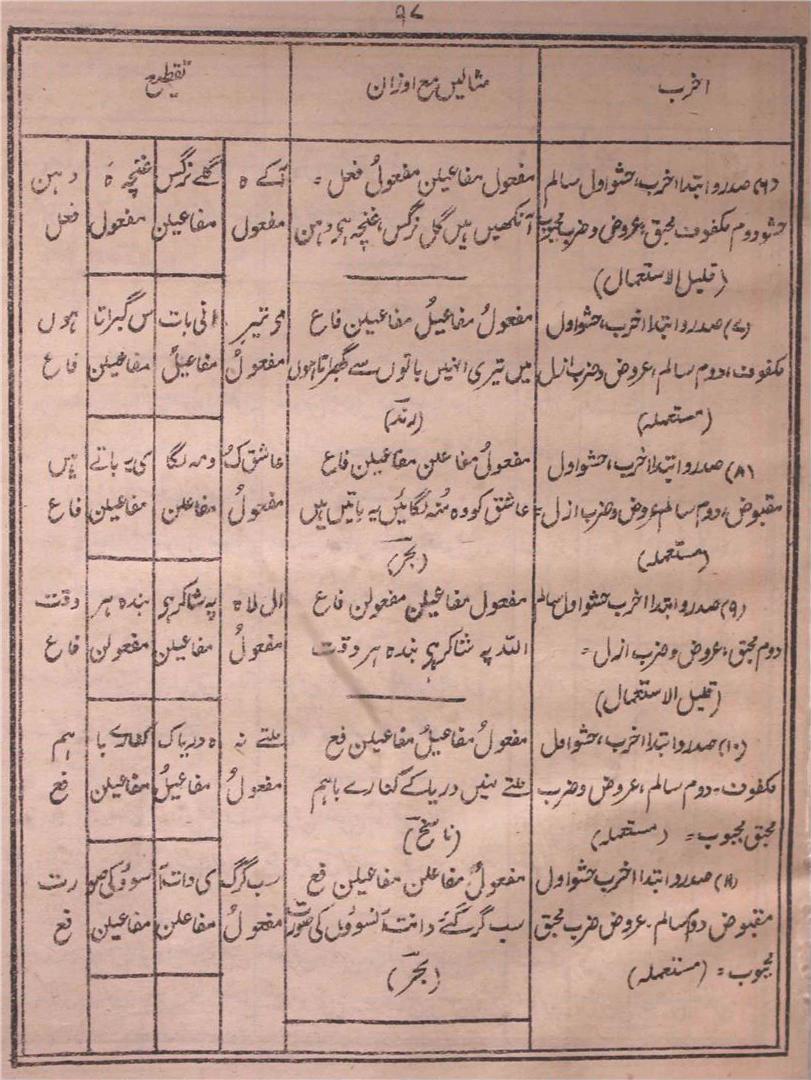 ۹۸
اخرب مثالیں مع اوزان تقطیع
(۶) صدر و ابتدا اخرب، حشو اول سالم مفعول مفاعیلن مفعولُ فعل = آکے ہ گلے نرگس غنچہ ہَ دہن
حشو دوم مکفوف محبق، عروض و ضرب مجبوب آنکھیں ہیں گل نرگس، غنچہ ہے دہن مفعول مفاعیلن مفعول فعل
(قلیل الاستعمال)
(۷) صدر و ابتدا اخرب، حشو اول مفعولُ مفاعیلُ مفاعیلن فاع مو تیر انی بات س گبراتا ہوں
مکفوف، دوم سالم، عروض و ضرب ازل میں تیری انہیں باتوں سے گھبراتا ہوں مفعولُ مفاعیلُ مفاعیلن فاع
(مستعملہ) (رند)
(۸) صدر و ابتدا اخرب، حشو اول مفعولُ مفاعلن مفاعیلن فاع عاشق کُ ومہ لگا ی یہ باتے ہیں
مقبوض، دوم سالم عروض و ضرب ازل = عاشق کو وہ منہ لگائیں یہ باتیں ہیں مفعولُ مفاعلن مفاعیلن فاع
(مستعملہ) (بحر)
(۹) صدر و ابتدا اخرب حشو اول سالم مفعول مفاعیلن مفعولن فاع ال لاہ پہ شاکر ہی بندہ ہر وقت
دوم محبق، عروض و ضرب ازل = اللہ پہ شاکر ہی بندہ ہر وقت مفعولُ مفاعیلن مفعولن فاع
(قلیل الاستعمال)
(۱۰) صدر و ابتدا اخرب، حشو اول مفعولُ مفاعیلُ مفاعیلن فع ملتے نہ ہ دریاک کنارے با ہم
مکفوف۔ دوم سالم، عروض و ضرب ملتے نہیں دریا کے کنارے باہم مفعولُ مفاعیلُ مفاعیلن فع
محبق مجبوب = (مستعملہ) (ناسخ)
(۱۱) صدر و ابتدا اخرب حشو اول مفعولُ مفاعلن مفاعیلن فع سب گرگ ی دات آ سوو کی صو رت
مقبوض دوم سالم۔ عروض ضرب محبق سب گر گئے دانت آنسوؤں کی صورت مفعولُ مفاعلن مفاعیلن فع
مجبوب = (مستعملہ) (بحر)